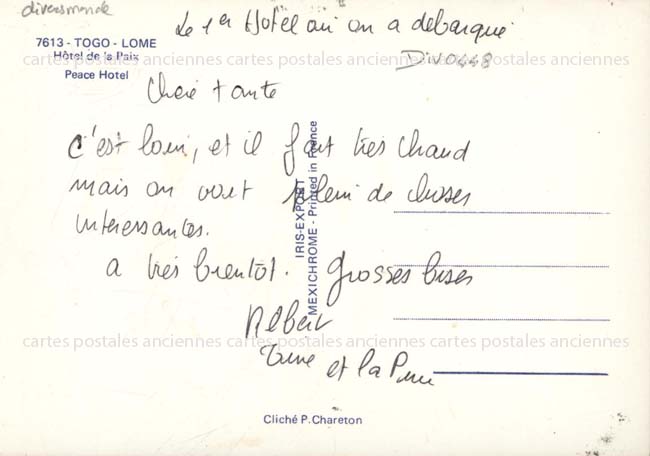 diversmonde
Le 1er Hotel où on a debarqué
7613 - TOGO - LOME
Hôtel de la Paix
Peace Hotel
cartes postales anciennes cartes postales anciennes cartes postales anciennes
Div0448
Chère tante
c'est loin, et il fait très chaud
mais on voit plein de choses
interessantes.
a très bientot. Grosses bises
IRIS-EXPORT
MEXICHROME - Printed in France
Albert
cartes postales anciennes cartes postales anciennes cartes postales anciennes
et la
Cliché P. Chareton